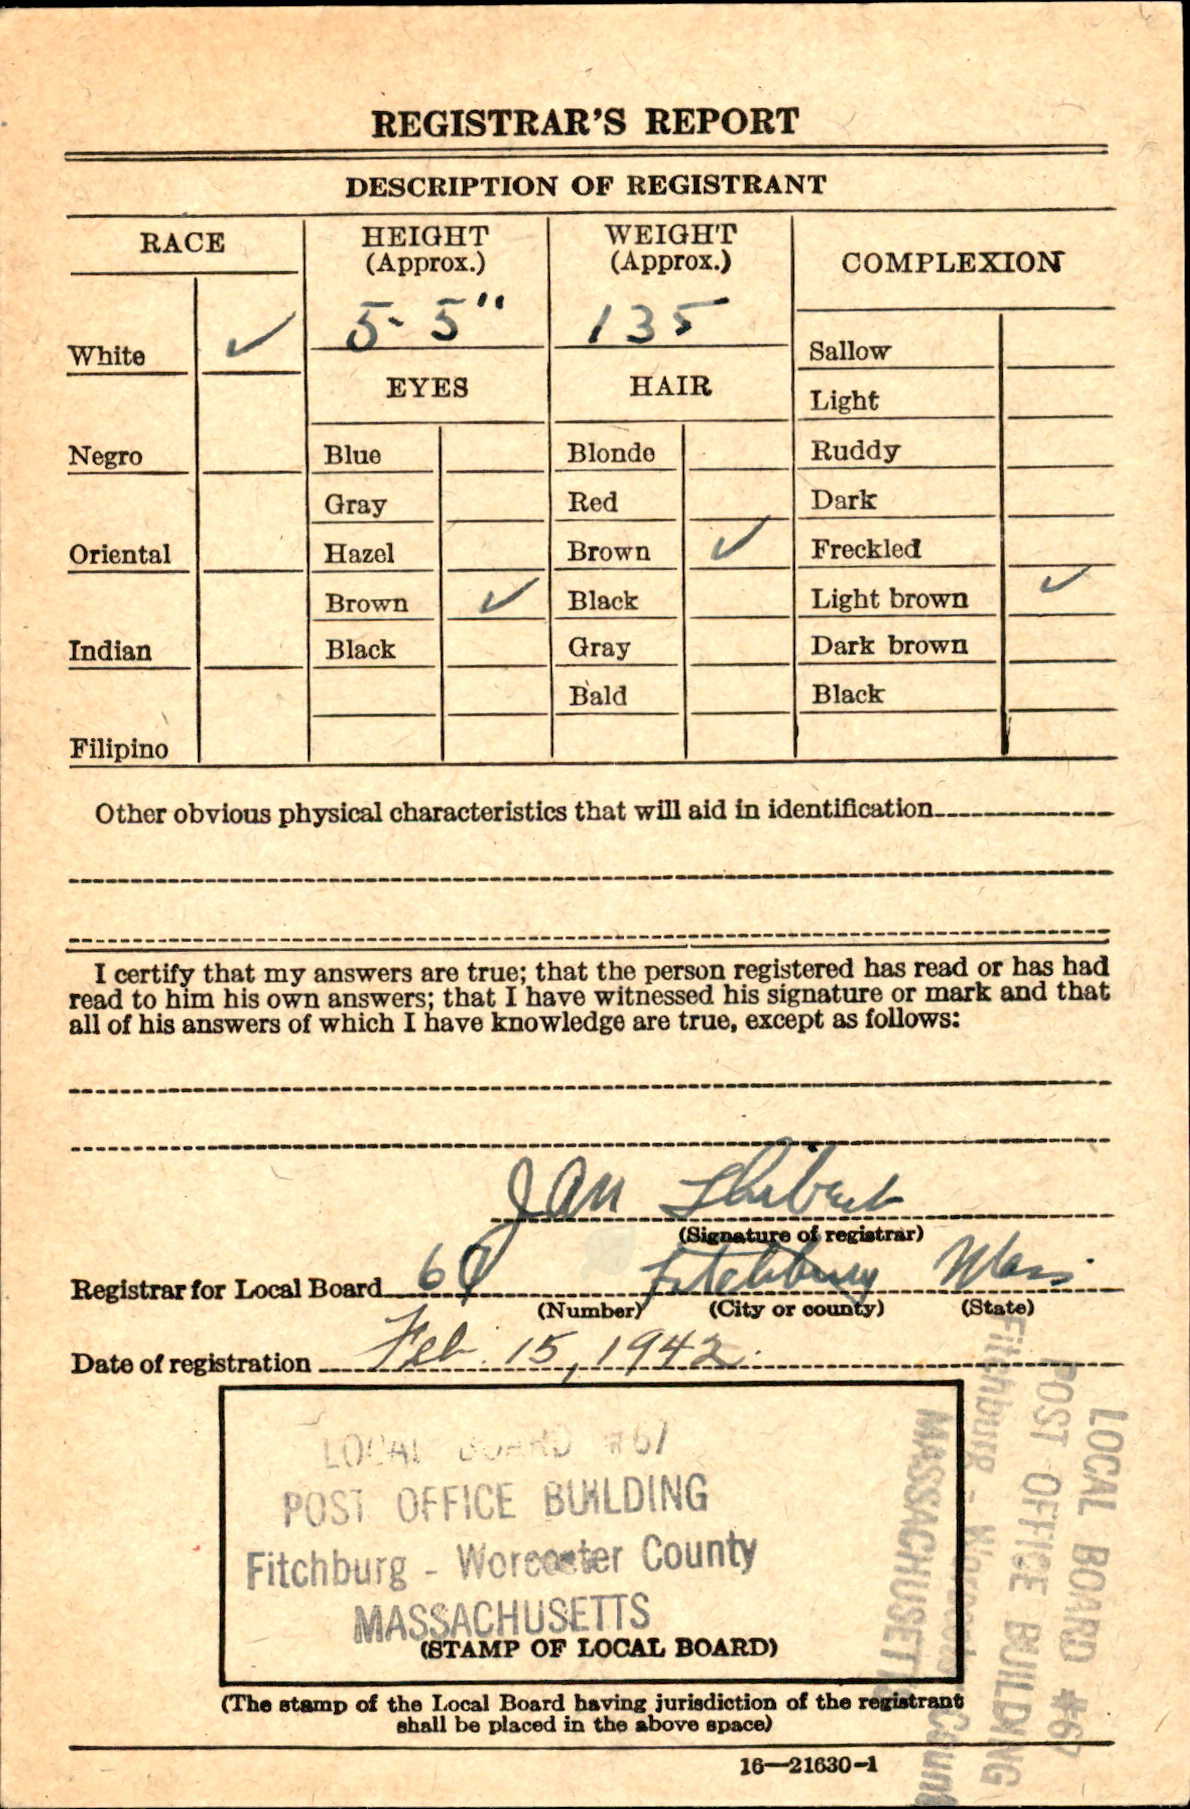 REGISTRAR'S REPORT
DESCRIPTION OF REGISTRANT
RACE
HEIGHT
(Approx.)
WEIGHT
(Approx.)
COMPLEXION
5-5"
135
White ✓
Sallow
EYES
HAIR
Light
Negro
Blue
Blonde
Ruddy
Gray
Red
Dark
Oriental
Hazel
Brown ✓
Freckled
Brown ✓
Black
Light brown ✓
Indian
Black
Gray
Dark brown
Bald
Black
Filipino
Other obvious physical characteristics that will aid in identification
I certify that my answers are true; that the person registered has read or has had
read to him his own answers; that I have witnessed his signature or mark and that
all of his answers of which I have knowledge are true, except as follows:
Jan
(Signature of registrar)
Registrar for Local Board 67 Fitchburg Mass
(Number) (City or county) (State)
Date of registration Feb. 15, 1942.
LOCAL BOARD #67
POST OFFICE BUILDING
Fitchburg - Worcester County
MASSACHUSETTS
(STAMP OF LOCAL BOARD)
(The stamp of the Local Board having jurisdiction of the registrant
shall be placed in the above space)
16—21630-1
LOCAL BOARD #67
POST OFFICE BUILDING
Fitchburg - Worcester Coun
MASSACHUSETT